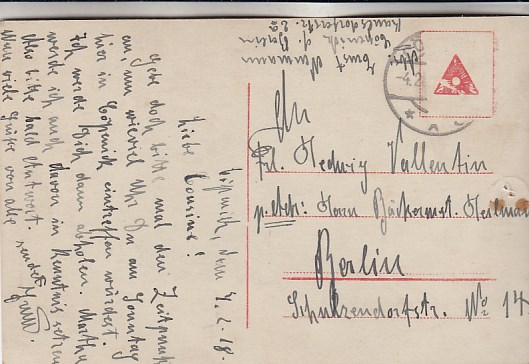 Abs.: Ernst Neumann
Cöpenick b/ Berlin
Kaulsdorferstr. 22
Cöpenick, den 4.2.18.
Liebe Cousine!
Gebe doch bitte mal den Zeitpunkt
an, um wieviel Uhr Du am Sonntag
hier in Cöpenick eintreffen würdest.
Ich werde Dich dann abholen. Martha
werde ich auch davon in Kenntnis setzen.
Also bitte bald Antwort.
Nun viele Grüße von alle
sendet
Ernst.
An
Frl. Hedwig Vallentin
p. Adr: Herrn Bäckermstr. Heilmann
Berlin
Schulzendorfstr. No 14